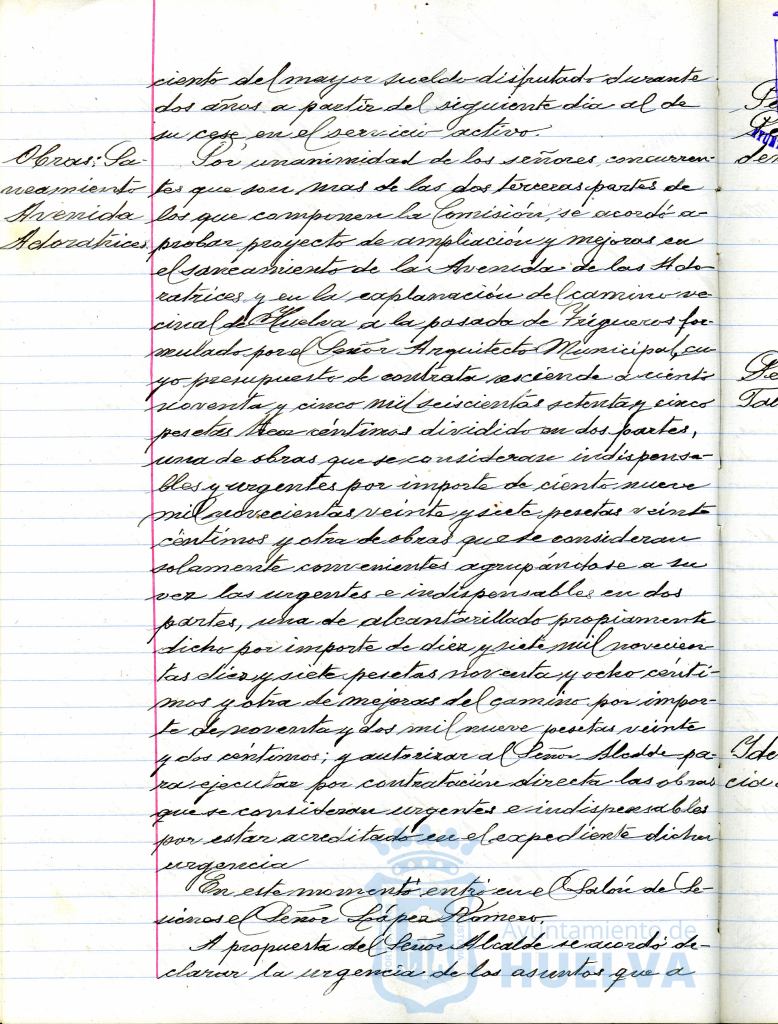 ciento del mayor sueldo disfrutado durante
dos años a partir del siguiente dia al de
su cese en el servicio activo.
Obras: Sa-
neamiento
Avenida
Adoratrices
Por unanimidad de los señores concurren-
tes que son mas de las dos terceras partes de
los que componen la Comisión, se acordó a-
probar proyecto de ampliación y mejoras en
el saneamiento de la Avenida de las Ado-
ratrices y en la explanación del camino ve-
cinal de Huelva a la pasada de Trigueros for-
mulado por el Señor Arquitecto Municipal, cu-
yo presupuesto de contrata asciende a ciento
noventa y cinco mil seiscientas setenta y cinco
pesetas céntimos dividido en dos partes,
una de obras que se consideran indispensa-
bles y urgentes por importe de ciento nueve
mil novecientas veinte y siete pesetas veinte
céntimos y otra de obras que se consideran
solamente convenientes agrupándose a su
vez las urgentes e indispensables en dos
partes, una de alcantarillado propiamente
dicho por importe de diez y siete mil novecien-
tas diez y siete pesetas noventa y ocho cénti-
mos y otra de mejoras del camino por impor-
te de noventa y dos mil nueve pesetas veinte
y dos céntimos; y autorizar al Señor Alcalde pa-
ra ejecutar por contratación directa las obras
que se consideran urgentes e indispensables
por estar acreditado en el expediente dicha
urgencia
En este momento entró en el Salón de Se-
siones el Señor López Romero.
A propuesta del Señor Alcalde se acordó de-
clarar la urgencia de los asuntos que a
Ayuntamiento de
HUELVA